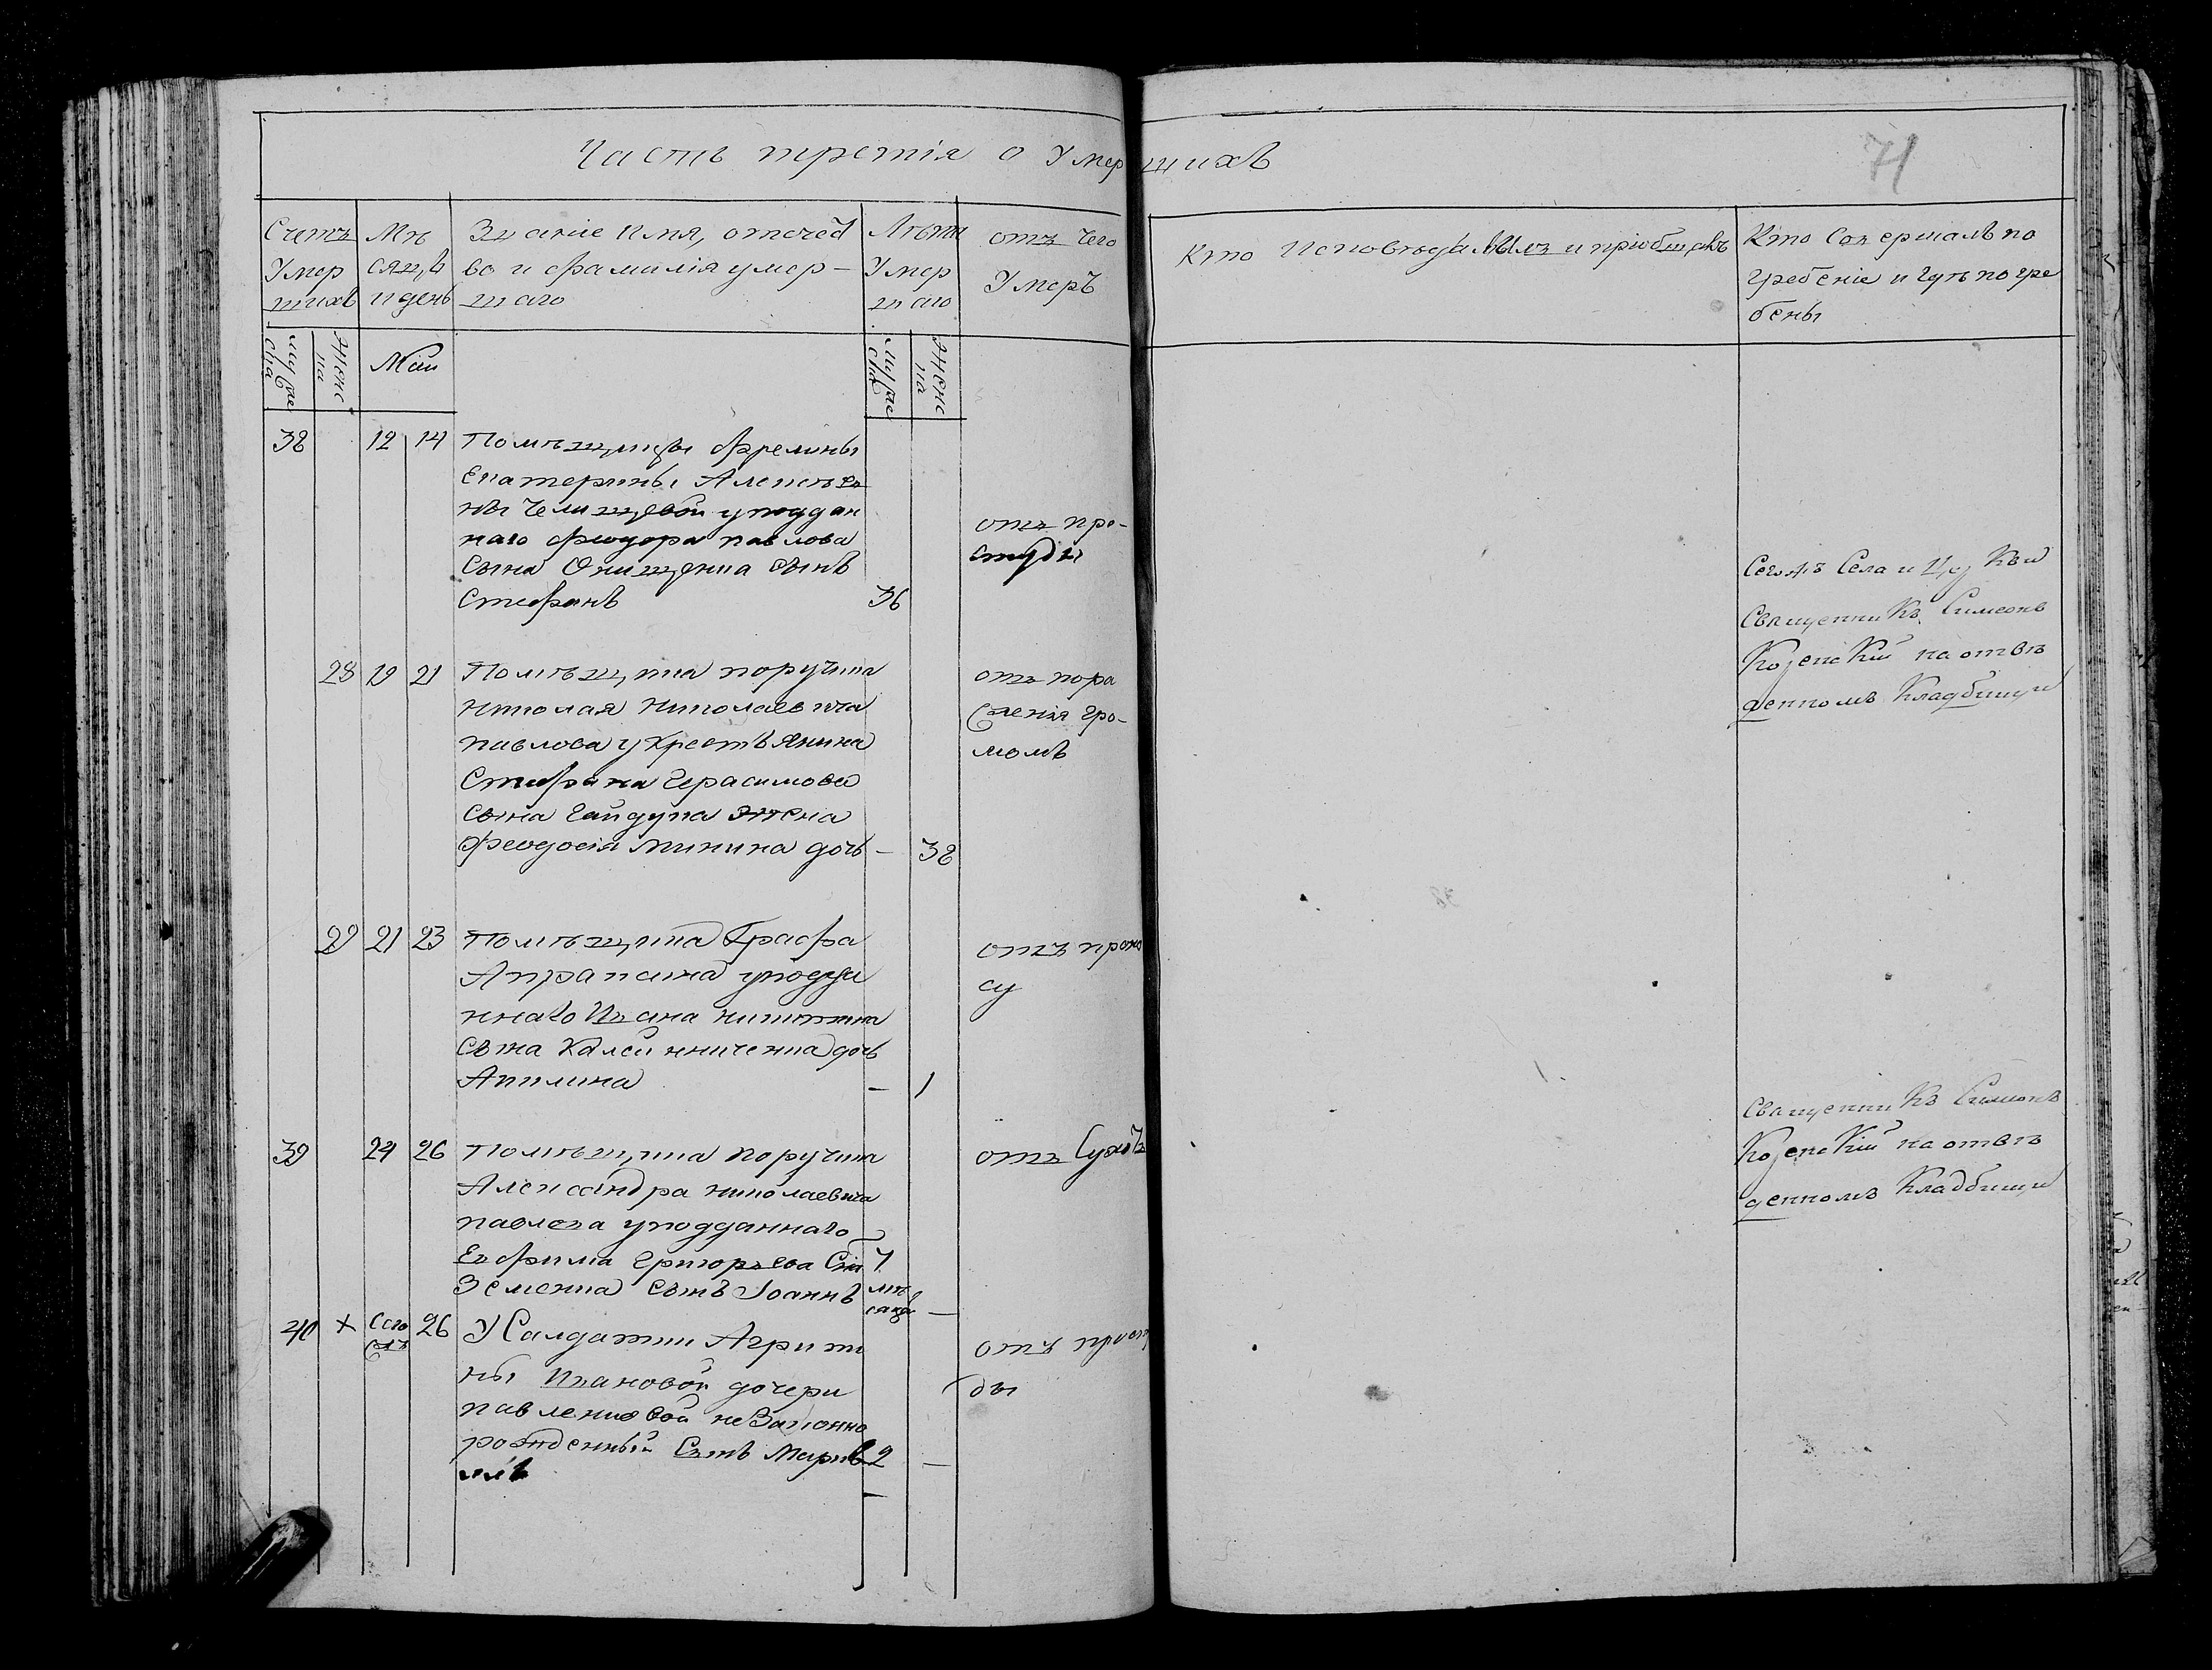 Часть третія о Умершихъ
71
Счетъ Умершихъ
Мѣсяцъ и день
Званіе имя, отчество и фамилія умершаго
Лѣта Умершаго
отъ чего Умеръ
Кто исповѣдывалъ и пріобщалъ
Кто Совершалъ погребеніе и гдѣ погребены
Мужеска
Женска
Маи
Мужеска
Женска
38 12 14 Помѣщицы Фрелины
Екатерины Алексѣев
ны Челищевой у поддан
наго Феодора павлова
Сына Онищенка Сынъ
Стефанъ 36
отъ про-
студы
Сего Села и
Священникъ Симеонъ
на отве
денномъ Кладбищи
28 19 21 Помѣщика поручика
Николая Николаевича
павлова у Крестьянина
Стефана Герасимова
Сына Гайдука Жена
Феодосія Минина дочь — 38
отъ пора
женія гро-
момъ
29 21 23 Помѣщика Графа
Апраксина у подда
ннаго Ивана Никитина
Сына дочь
Акилина — 1
отъ поно
су
39 24 26 Помѣщика поручика
Александра Николаевича
павлова у подданнаго
Евфима Григорьева Сна
Земенка Сынъ Іоаннъ
мѣ
сяцъ —
отъ Сухотъ
Священникъ Симеонъ
на отве
денномъ Кладбищи
40 + 26 У Салдатки Агрипи
ны Ивановой дочери
павленковой неЗаконно
рожденный Сынъ 2 —
отъ прост
ды